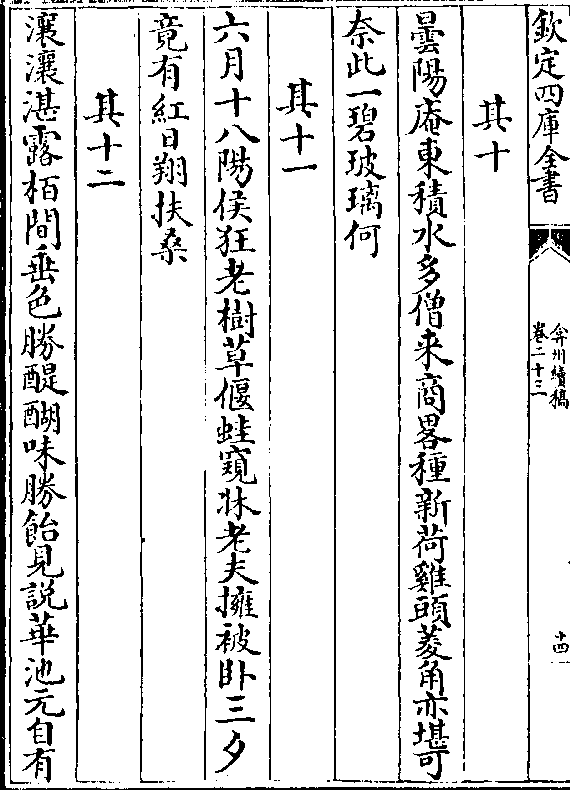 欽定四庫全書
弇州續稿
卷二十三
十四
其十
曇陽庵東積水多僧来商畧種新荷雞頭菱角亦堪可
奈此一碧玻璃何
其十一
六月十八陽侯狂老樹草偃蛙窺牀老夫擁被卧三夕
竟有紅日翔扶桑
其十二
瀼瀼湛露栢間垂色勝醍醐味勝飴見説華池元自有